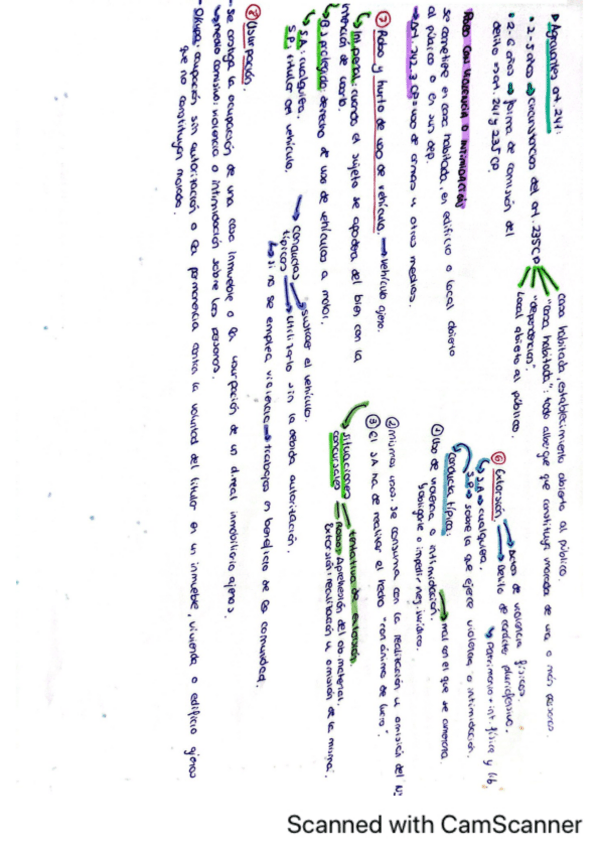 ▷ Agravantes art. 241:
• 2-5 años ⇒ circunstancias del art. 235 CP
casa habitada, establecimiento abierto al público.
"casa habitada": todo albergue que constituya morada de una o más personas.
"dependencias".
Local abierto al público.
• 2-6 años ⇒ forma de comisión del
delito ⇒ art. 241 y 235 CP.
Robo con violencia o intimidación
se cometiere en casa habitada, en edificio o local abierto
al público o en sus dep.
→ Art. 242.3 CP = uso de armas u otros medios.
⑦ Robo y hurto de uso de vehículo. → vehículo ajeno.
Im. penal: cuando el sujeto se apodera del bien con la
intención de usarlo.
BJ protegido: derecho de uso de vehículos a motor.
SA: cualquiera.
SP: titular del vehículo.
→ conductas típicos
→ sustraer el vehículo.
→ utilizarlo sin la debida autorización.
↳ si no se emplea violencia → trabajos en beneficio de la comunidad.
⑧ Usurpación.
- Se castiga la ocupación de una cosa inmueble o la usurpación de un d. real inmobiliario ajenos.
→ medio comisivo: violencia o intimidación sobre las personas.
- Okupa: ocupación sin autorización o la permanencia contra la voluntad del titular en un inmueble, vivienda o edificio ajenos
que no constituyan morada.
⑥ Extorsión
→ Actos de violencia físicos.
→ Delito de carácter pluriofensivo.
↳ patrimonio + int. física y lib.
SA → cualquiera.
SP → sobre la que ejerce violencia o intimidación.
conducta típica:
① Uso de violencia o intimidación. → mal con el que se amenaza.
② mismos usos. se consuma con la realización u omisión del N.
③ El SA ha de realizar el hecho "con ánimo de lucro".
situaciones concursales
— tentativa de extorsión.
— Robo: Aprehensión del ob material.
Extorsión: realización u omisión de la misma.
Scanned with CamScanner